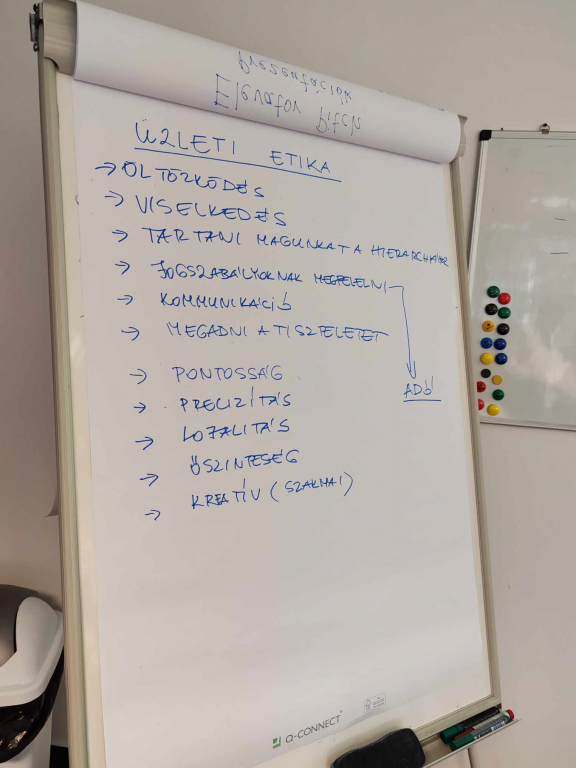 Prezentációk
Elevator pitch
ÜZLETI ETIKA
→ ÖLTÖZKÖDÉS
→ VISELKEDÉS
→ TARTANI MAGUNKAT A HIERARCHIÁHOZ
→ JOGSZABÁLYOKNAK MEGFELELNI
→ KOMMUNIKÁCIÓ
→ MEGADNI A TISZTELETET
→ PONTOSSÁG
ADÓ
→ PRECIZITÁS
→ LOJALITÁS
→ ŐSZINTESÉG
→ KREATÍV (SZAKMAI)
Q-CONNECT